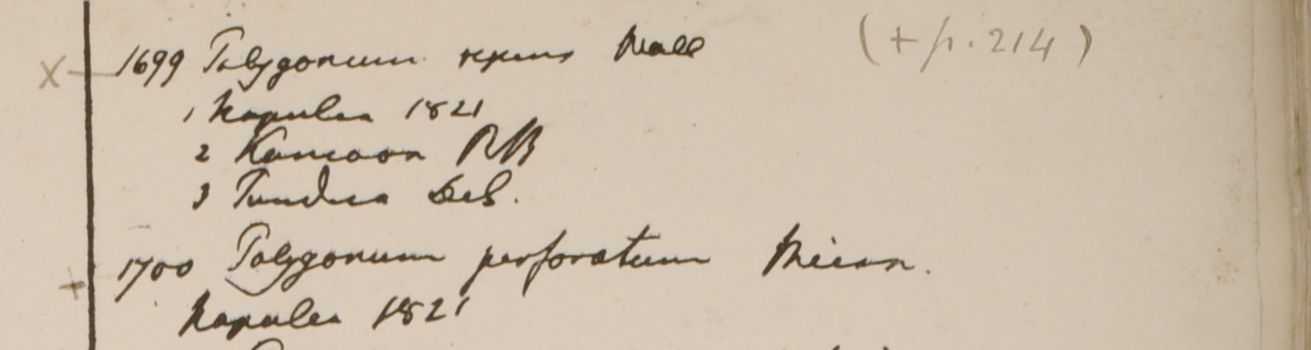 x 1699 Polygonum repens Wall (+ p. 214)
1 Napalia 1821
2 Kamaon RB
3 Tundua Deb.
+ 1700 Polygonum perforatum Meisn.
Napalia 1821